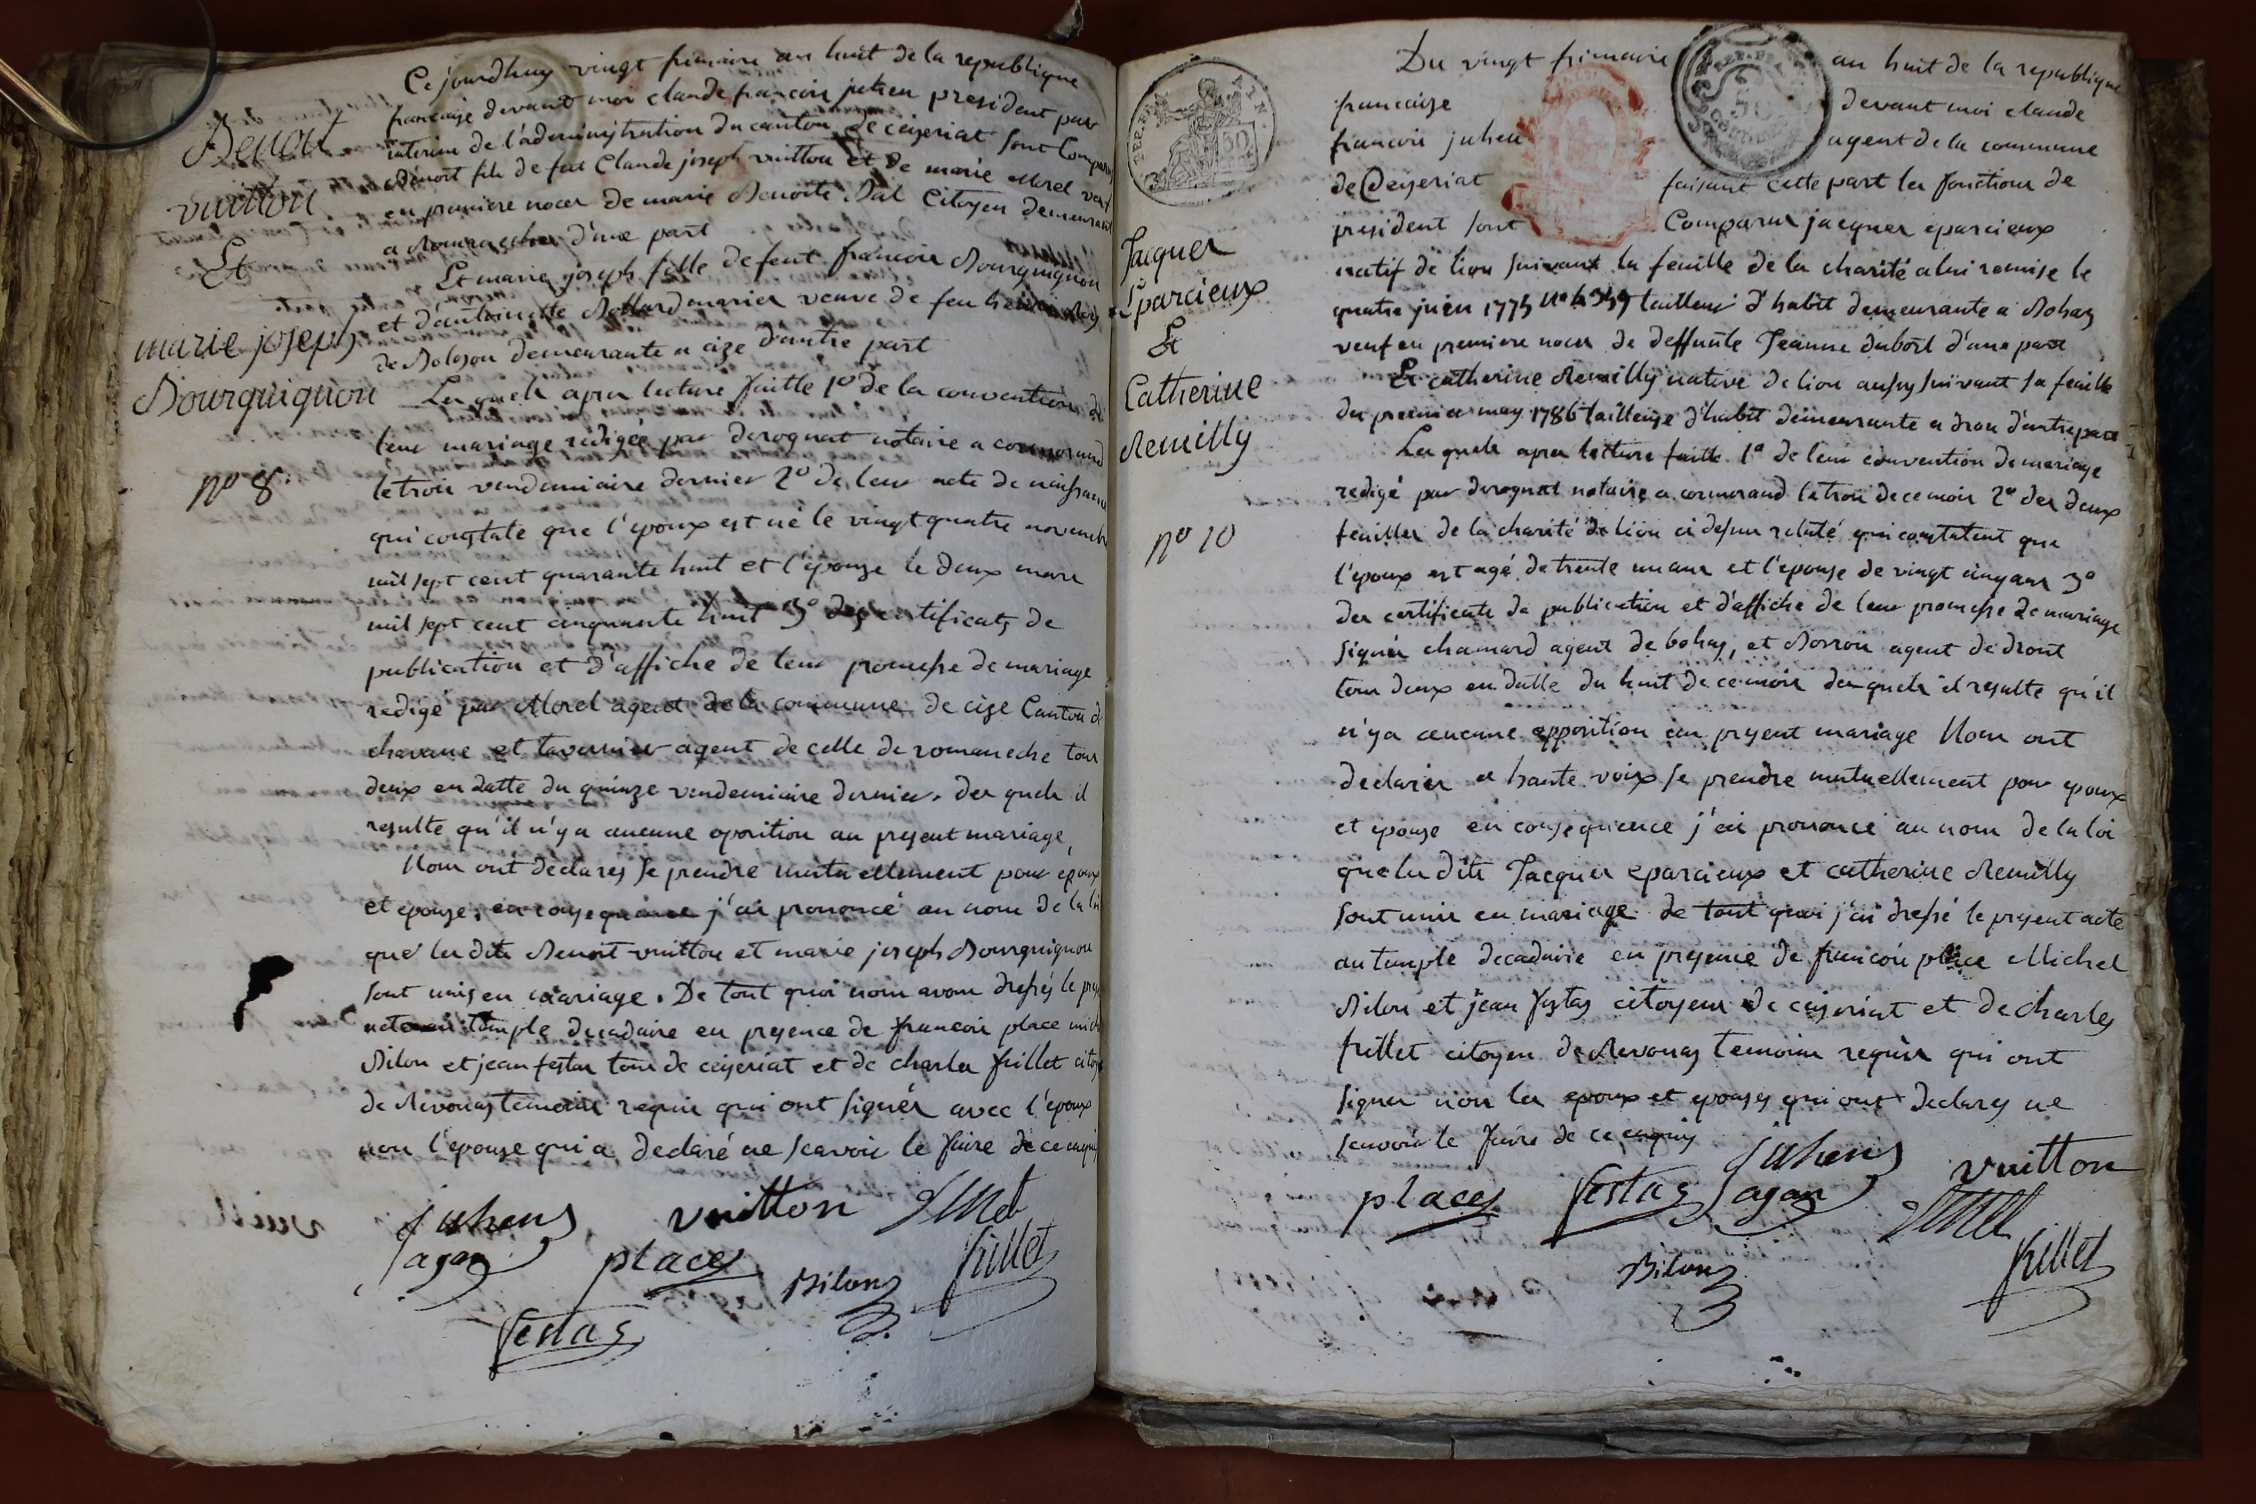 Benoit
vuitton
Et
marie joseph
Bourguignon
no 8.
Ce jourdhuy vingt frimaire an huit de la republique
francaise devant moi claude francois juhen president par
interim de l'administration du canton de ceyseriat sont comparus
Benoit fils de feu Claude joseph vuitton et de marie Morel veuf
en premiere noces de marie Benoite citoyen demeurant
a d'une part
Et marie joseph fille de feu francois Bourguignon
et d'antoinette mariés veuve de feu
de demeurante a cize d'autre part
Les quels apres lecture faitte 1o de la convention de
leur mariage redigée par derognat notaire a cormorand
le trois vendemiaire dernier 2o de leur acte de naissance
qui constate que l'epoux est né le vingt quatre novembre
mil sept cent quarante huit et l'épouze le deux mars
mil sept cent cinquante huit 3o des certificats de
publication et d'affiche de leur promesse de mariage
redigé par Morel agent de la commune de cize Canton de
chavane et tavernier agent de celle de romaneche tous
deux en datte du quinze vendemiaire dernier. des quels il
resulte qu'il n'y a aucune oposition au present mariage,
Nous ont declarés se prendre mutuellement pour epoux
et epouze, en consequence j'ai prononcé au nom de la loi
que les dits Benoit vuitton et marie joseph Bourguignon
sont unis en mariage. De tout quoi nous avons dressés le
acte au temple decadaire en presence de francois place
Bilon et jean festas tous de ceyseriat et de charles frillet
de Revonas temoins requis qui ont signés avec l'epoux
non l'epouze qui a declaré ne scavoir le faire de ce enquis
juhens
agan
vuitton
places
Bilon
frillet
festas
Jacques
Eparcieux
Et
Catherine
Remilly
no 10
Du vingt frimaire an huit de la republique
francaize devant moi claude
francois juhen agent de la commune
de Ceyseriat faisant cette part les fonctions de
president sont Comparus jacques eparcieux
natif de lion suivant la feuille de la charité a lui remise le
quatre juin 1775 tailleur d'habit demeurante a Bohas
veuf en premiere noces de deffunte Jeanne dubost d'une part
Et catherine Remilly native de lion aussy suivant sa feuille
du premier may 1786 tailleuze d'habit demeurante a drou d'autre part
Les quels apres lecture faitte 1o de leur convention de mariage
redigé par derognat notaire a cormorand le trois de ce mois 2o des deux
feuilles de la charité de lion ci dessus relaté qui constatent que
l'epoux est agé de trente un ans et l'epouse de vingt cinq ans 3o
des certificats de publication et d'affiche de leur promesse de mariage
signés chamard agent de bohas, et Borron agent de dront
tous deux en datte du huit de ce mois des quels il resulte qu'il
n'y a aucune opposition au present mariage Nous ont
declarés a haute voix se prendre mutuellement pour epoux
et epouze en consequence j'ai prononcé au nom de la loi
que les dits Jacques eparcieux et catherine Remilly
sont unis en mariage de tout quoi j'ai dressé le present acte
au temple decadaire en presence de francois place Michel
Bilon et jean festas citoyens de ceyseriat et de charles
frillet citoyen de Revonas temoins requis qui ont
signés non les epoux et epouses qui ont declarés ne
scavoir le faire de ce enquis
juhens
vuitton
places
festas
agan
Bilon
frillet